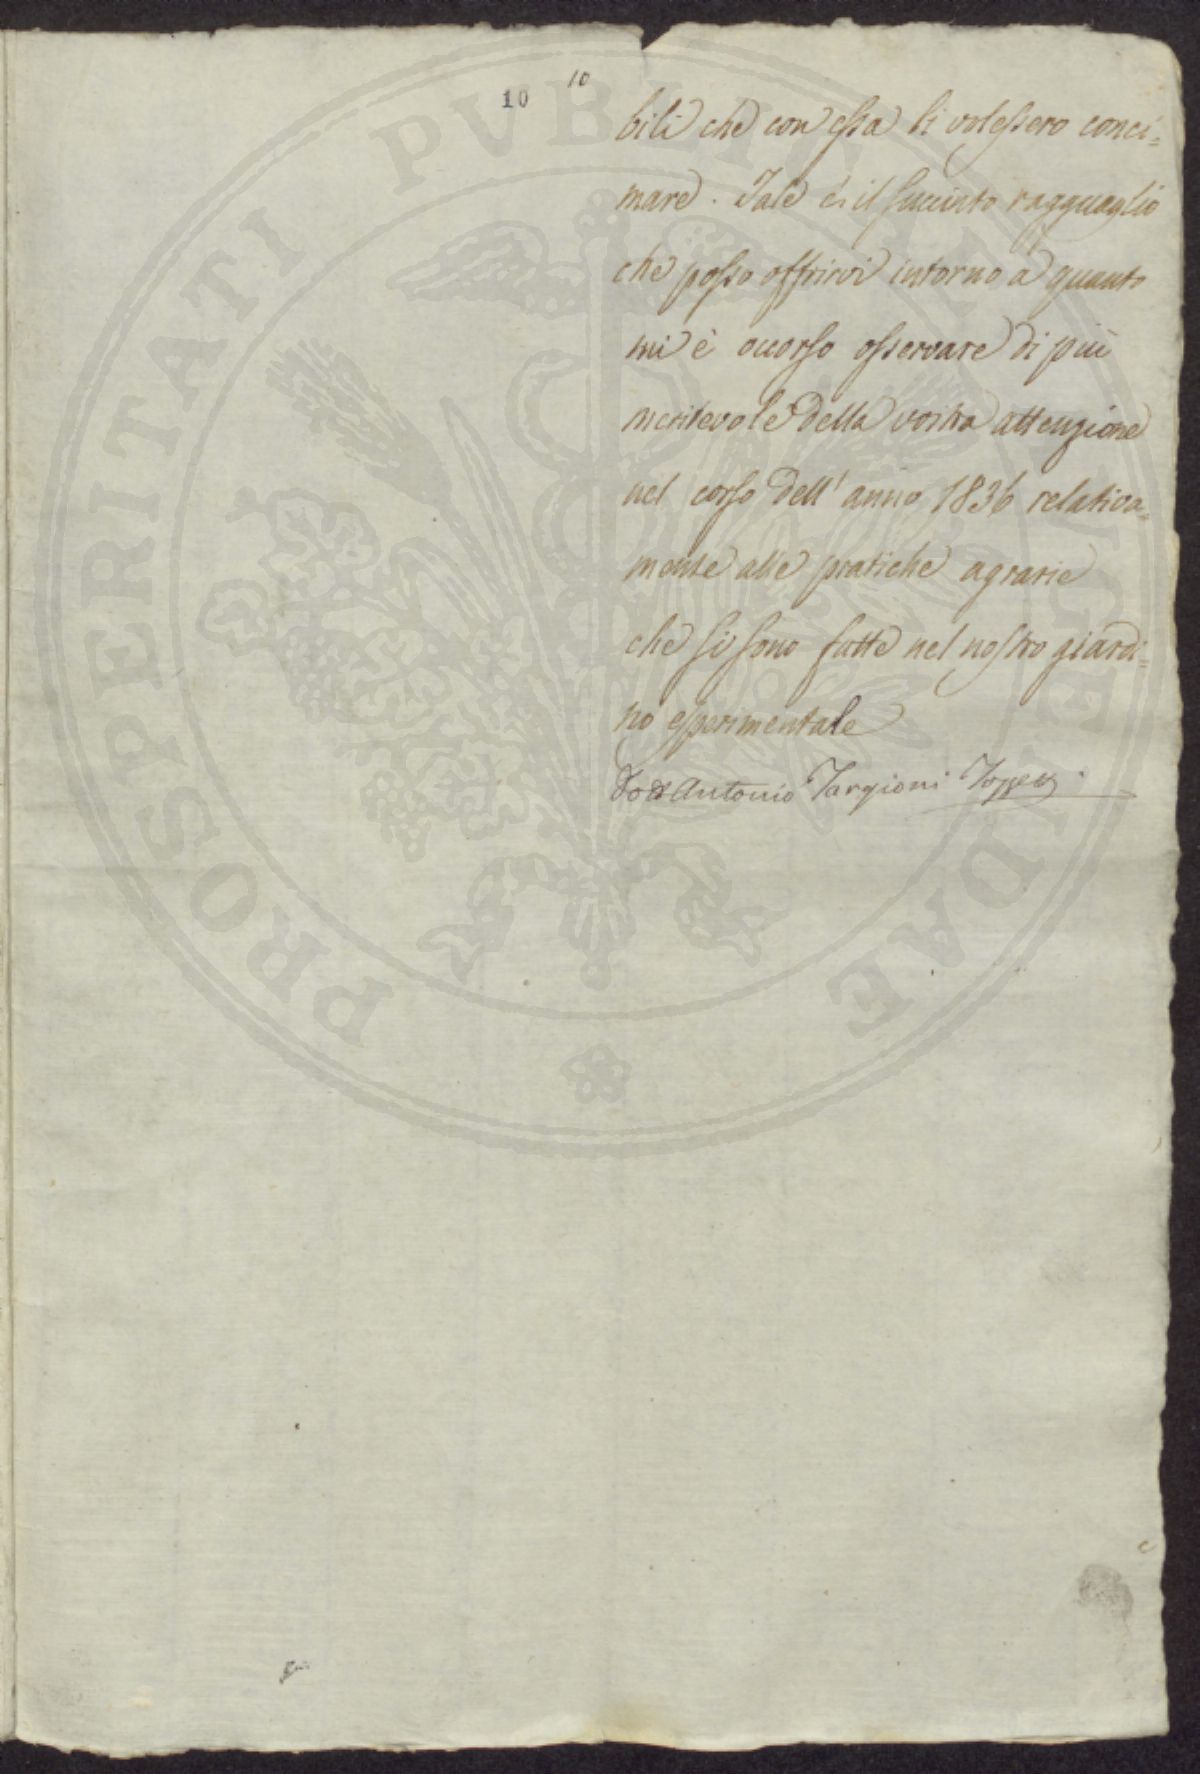 10
10
bili che con essa si volessero conci=
mare. Tale è il succinto ragguaglio
che posso offrirvi intorno a quanto
mi è occorso osservare di più
meritevole della vostra attenzione
nel corso dell' anno 1836 relativa=
mente alle pratiche agrarie
che si sono fatte nel nostro giardi=
no esperimentale
Dott Antonio Targioni Tozzetti
PROSPERITATI PVBLICAE AVGENDAE